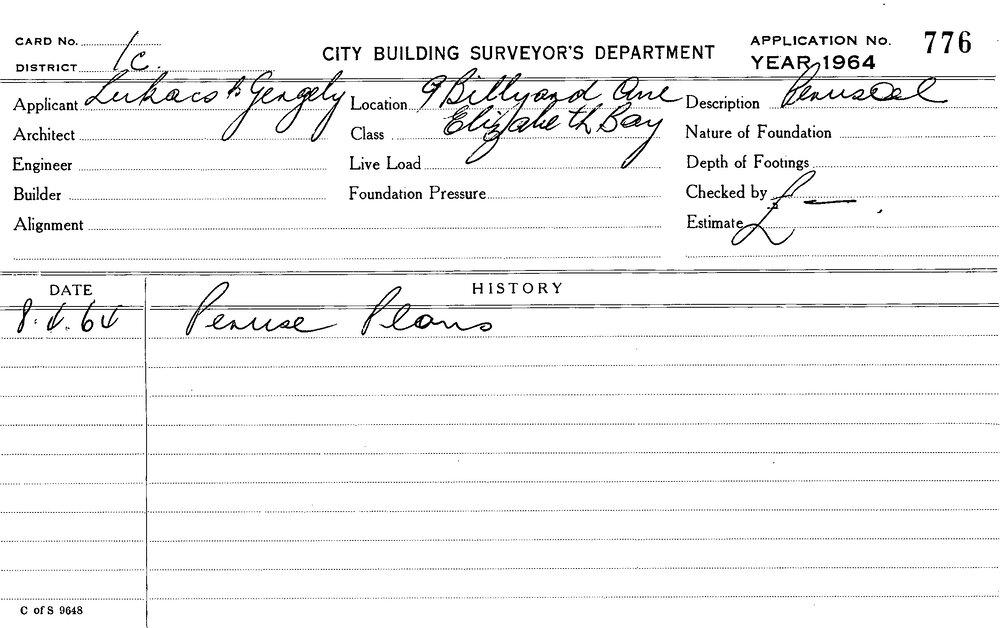 CARD No.
DISTRICT 1c.
CITY BUILDING SURVEYOR'S DEPARTMENT
APPLICATION No. 776
YEAR 1964
Applicant Lukacs & Gergely
Location 9 Billyard Ave
Elizabeth Bay
Description Perusal
Architect
Class
Nature of Foundation
Engineer
Live Load
Depth of Footings
Builder
Foundation Pressure
Checked by
Alignment
Estimate £ —
DATE
HISTORY
8.4.64 Peruse Plans
C of S 9648